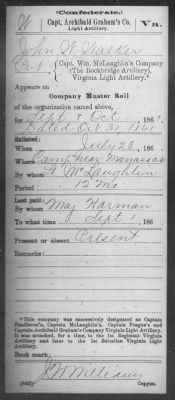 (Confederate.)
W Capt. Archibald Graham's Co. Va.
Light Artillery.
John W Walker
Pvt, Capt. Wm. McLaughlin's Company
(The Rockbridge Artillery),
Virginia Light Artillery.
Appears on
Company Muster Roll
of the organization named above,
for Sept & Oct, 1861.
Dated Oct 31, 1861
Enlisted:
When July 23, 186
Where Camp near Manassas
By whom W. McLaughlin
Period 12 Mo
Last paid:
By whom Maj Harman
To what time Sept 1, 186
Present or absent Present
Remarks:
*This company was successively designated as Captain
Pendleton's, Captain McLaughlin's, Captain Poague's and
Captain Archibald Graham's Company Virginia Light Artillery.
It was attached, for a time, to the 1st Regiment Virginia
Artillery and later to the 1st Battalion Virginia Light
Artillery.
Book mark:
J W Williams
(642) Copyist.